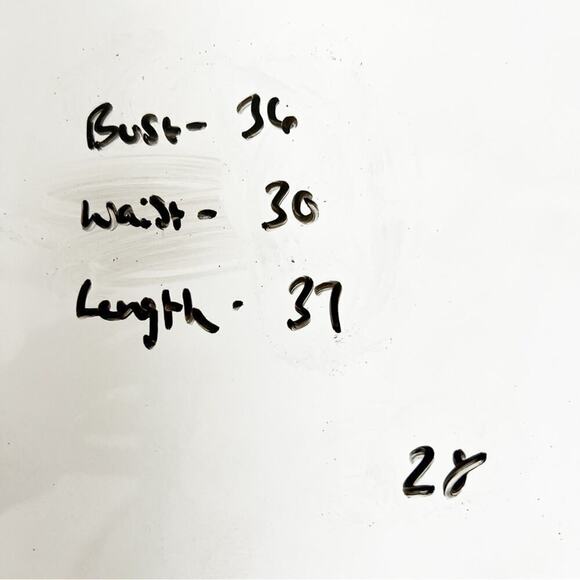 Bust- 36
Waist- 30
Length- 37
28